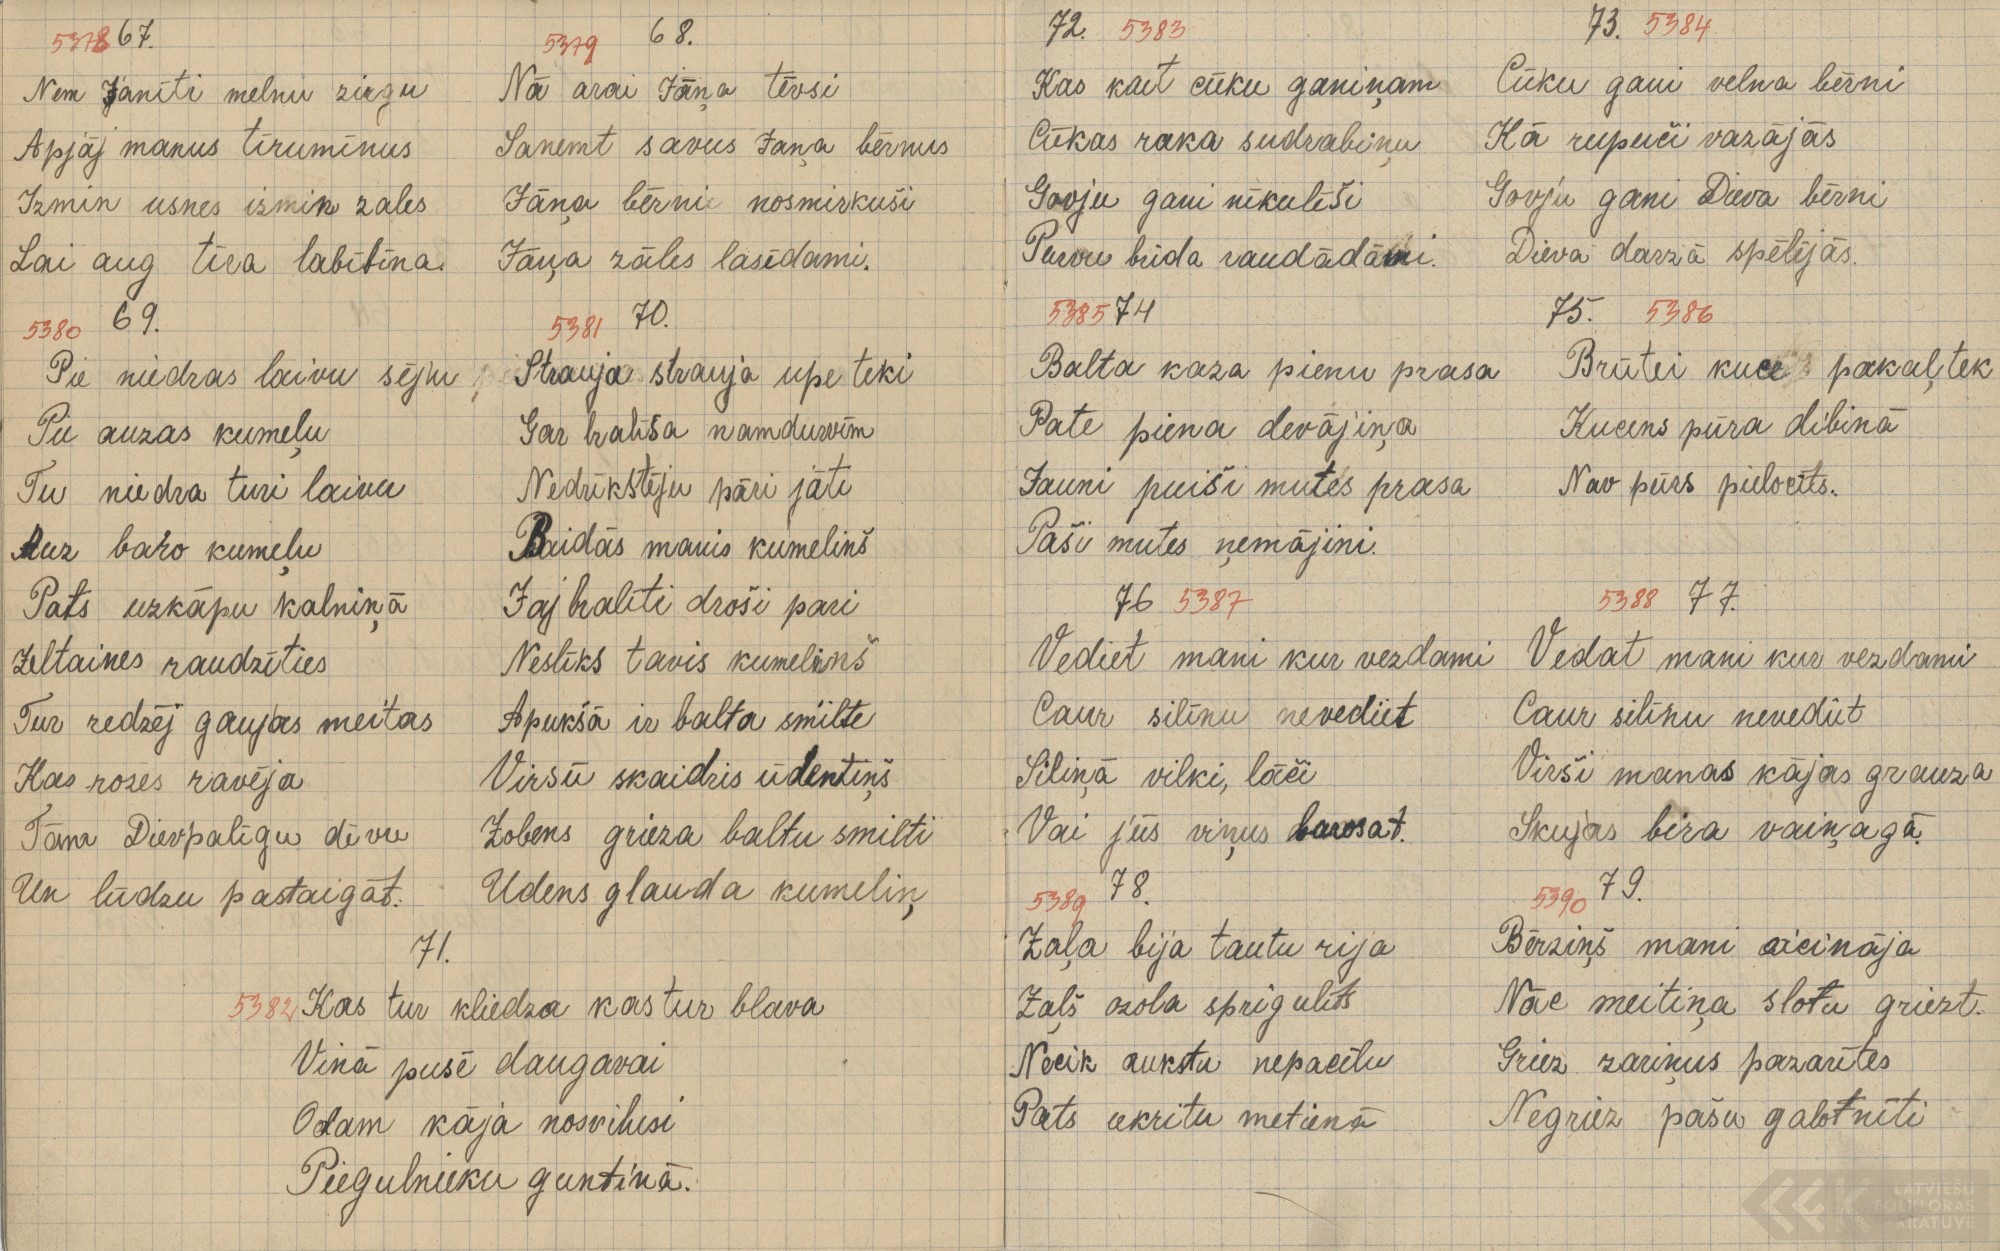 5378 67.
Nem Jānīti melnu zirgu
Apjāj manus tīrumīnus
Izmin usnes izmin zales
Lai aug tīra labībīna.
5379 68.
Nā arai Jāņa tēvsi
Sanemt savus Jaņa bērnus
Jāņa bērni nosmirkuši
Jāņa zāles lasīdami.
5380 69.
Pie niedras laivu sēju
Pie auzas kumeļu
Tu niedra turi laivu
Auz baro kumeļu
Pats uzkāpu kalniņā
Zeltaines raudzīties
Tur redzēj gaujas meitas
Kas rozes ravēja
Tām Dievpalīgu devu
Un lūdzu pastaigāt.
5381 70.
Strauja strauja upe teki
Gar bralīša namdurvīm
Nedrīkstēju pāri jāti
Baidās manis kumelinš
Jaj bralīti droši pari
Neslīks tavis kumelinš
Apukšā ir balta smilte
Virsū skaidris ūdentiņš
Zobens grieza baltu smilti
Udens glauda kumeliņ
71.
5382 Kas tur kliedza kas tur blava
Vinā pusē daugavai
Odam kāja nosvilusi
Piegulnieku guntinā.
72. 5383
Kas kait cūku ganiņam
Cūkas raka sudrabiņu
Govju gani nīkulīši
Purvu brida raudādāmi.
73. 5384
Cūku gani velna bērni
Kā rupuči vazājās
Govju gani Dieva bērni
Dieva darzā spēlējās.
5385 74
Balta kaza pienu prasa
Pate piena devājiņa
Jauni puiši mutes prasa
Paši mutes ņemājini.
75. 5386
Brūtei kuce pakaļ tek
Kucens pūra dibinā
Nav pūrs pielocīts.
76 5387
Vediet mani kur vezdami
Caur silīnu nevediet
Siliņā vilki, lāči
Vai jūs viņus barosat.
5388 77.
Vedat mani kur vezdami
Caur silīnu nevediet
Virši manas kājas grauza
Skujas bira vaiņagā.
5389 78.
Zaļa bija tautu rija
Zaļš ozola sprigulīts
Necik aukstu nepacēlu
Pats ukritu metienā
5390 79.
Bērziņš mani aicināja
Nāc meitiņa slotu griezt.
Griez zariņus pazarītes
Negriez pašu galotnīti
LATVIEŠU
FOLKLORAS
KRĀTUVE